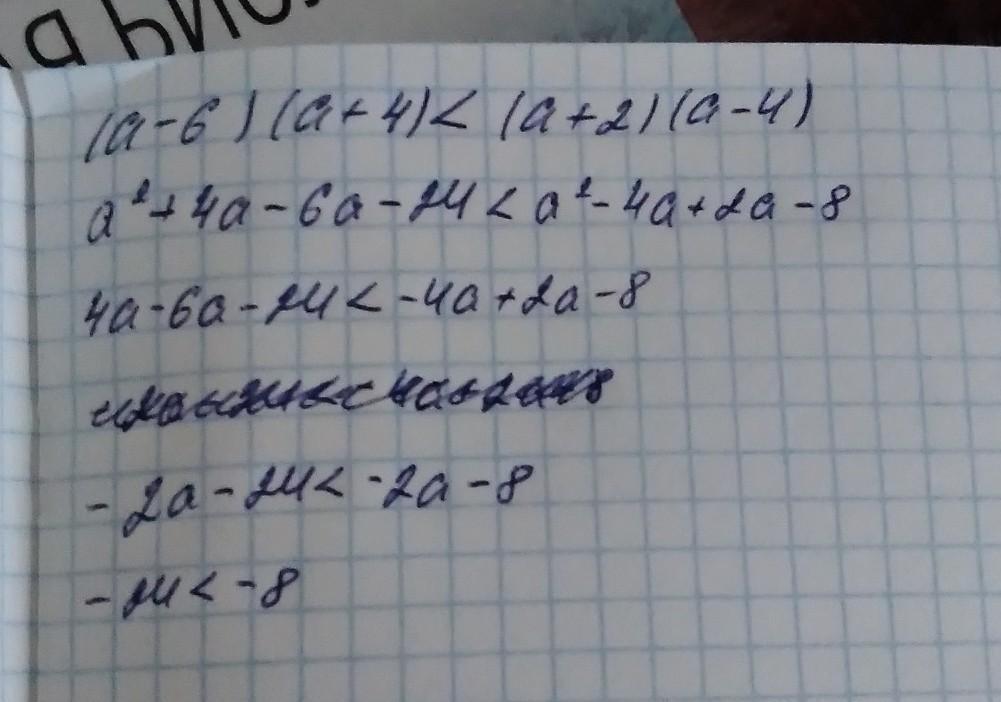 (a-6)(a+4)< (a+2)(a-4)
a²+4a-6a-24<a²-4a+2a-8
4a-6a-24<-4a+2a-8
-2a-24<-2a-8
-24<-8